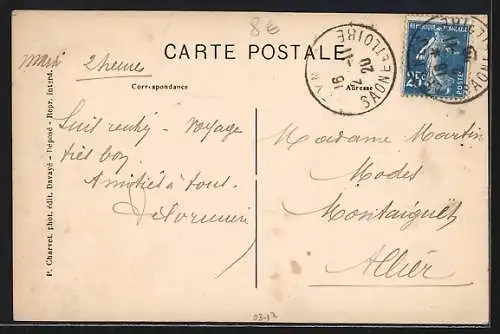 8€
CARTE POSTALE
mardi 2 heures
Correspondance
Adresse
SAONE-ET-LOIRE
REPUBLIQUE FRANCAISE
25c
POSTES
Suis rentré - Voyage
très bon
Amitiés à tous.
Madame Martin
Modes
Montaiguët
Allier
P. Charvet, phot. édit. Davayé - Déposé - Repr. Interd.
03-12